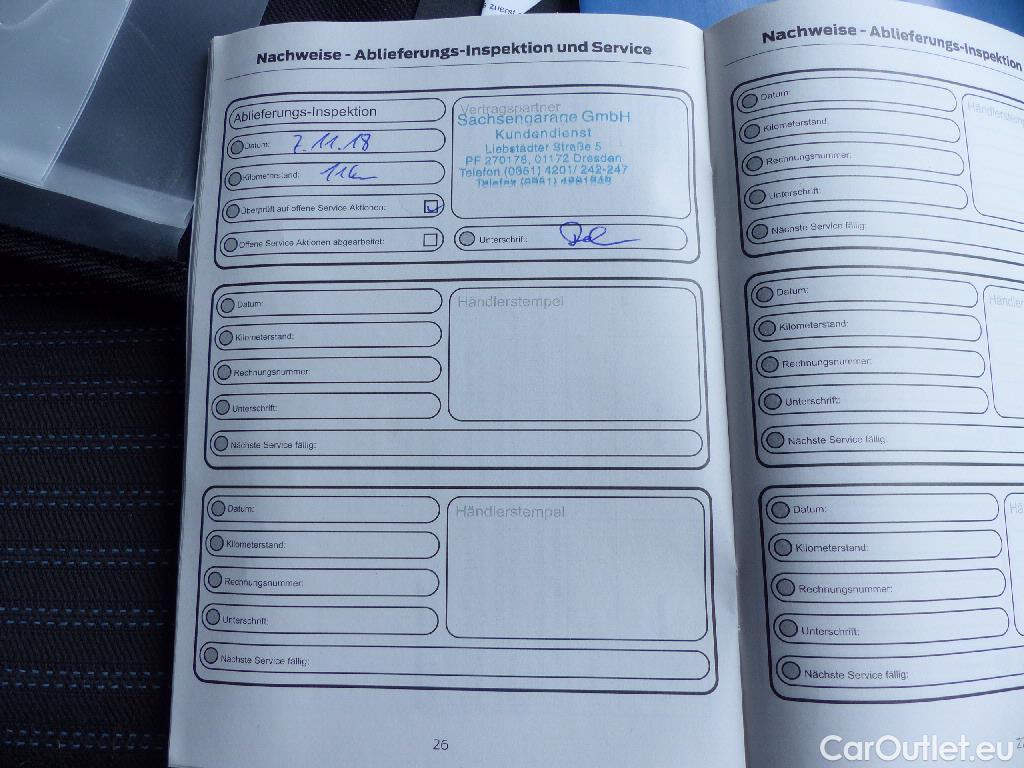 zuerst
Nachweise - Ablieferungs-Inspektion und Service
Ablieferungs-Inspektion
Datum: 7.11.18
Kilometerstand: 11km
Überprüft auf offene Service Aktionen:
Offene Service Aktionen abgearbeitet:
Vertragspartner
Sachsengarage GmbH
Kundendienst
Liebstädter Straße 5
PF 270178, 01172 Dresden
Telefon (0351) 4201/ 242-247
Unterschrift:
Datum:
Kilometerstand:
Rechnungsnummer:
Unterschrift:
Nächste Service fällig:
Händlerstempel
Datum:
Kilometerstand:
Rechnungsnummer:
Unterschrift:
Nächste Service fällig:
Händlerstempel
26
Nachweise - Ablieferungs-Inspektion
Datum:
Kilometerstand:
Rechnungsnummer:
Unterschrift:
Nächste Service fällig:
Datum:
Kilometerstand:
Rechnungsnummer:
Unterschrift:
Nächste Service fällig:
Datum:
Kilometerstand:
Rechnungsnummer:
Unterschrift:
Nächste Service fällig:
CarOutlet.eu